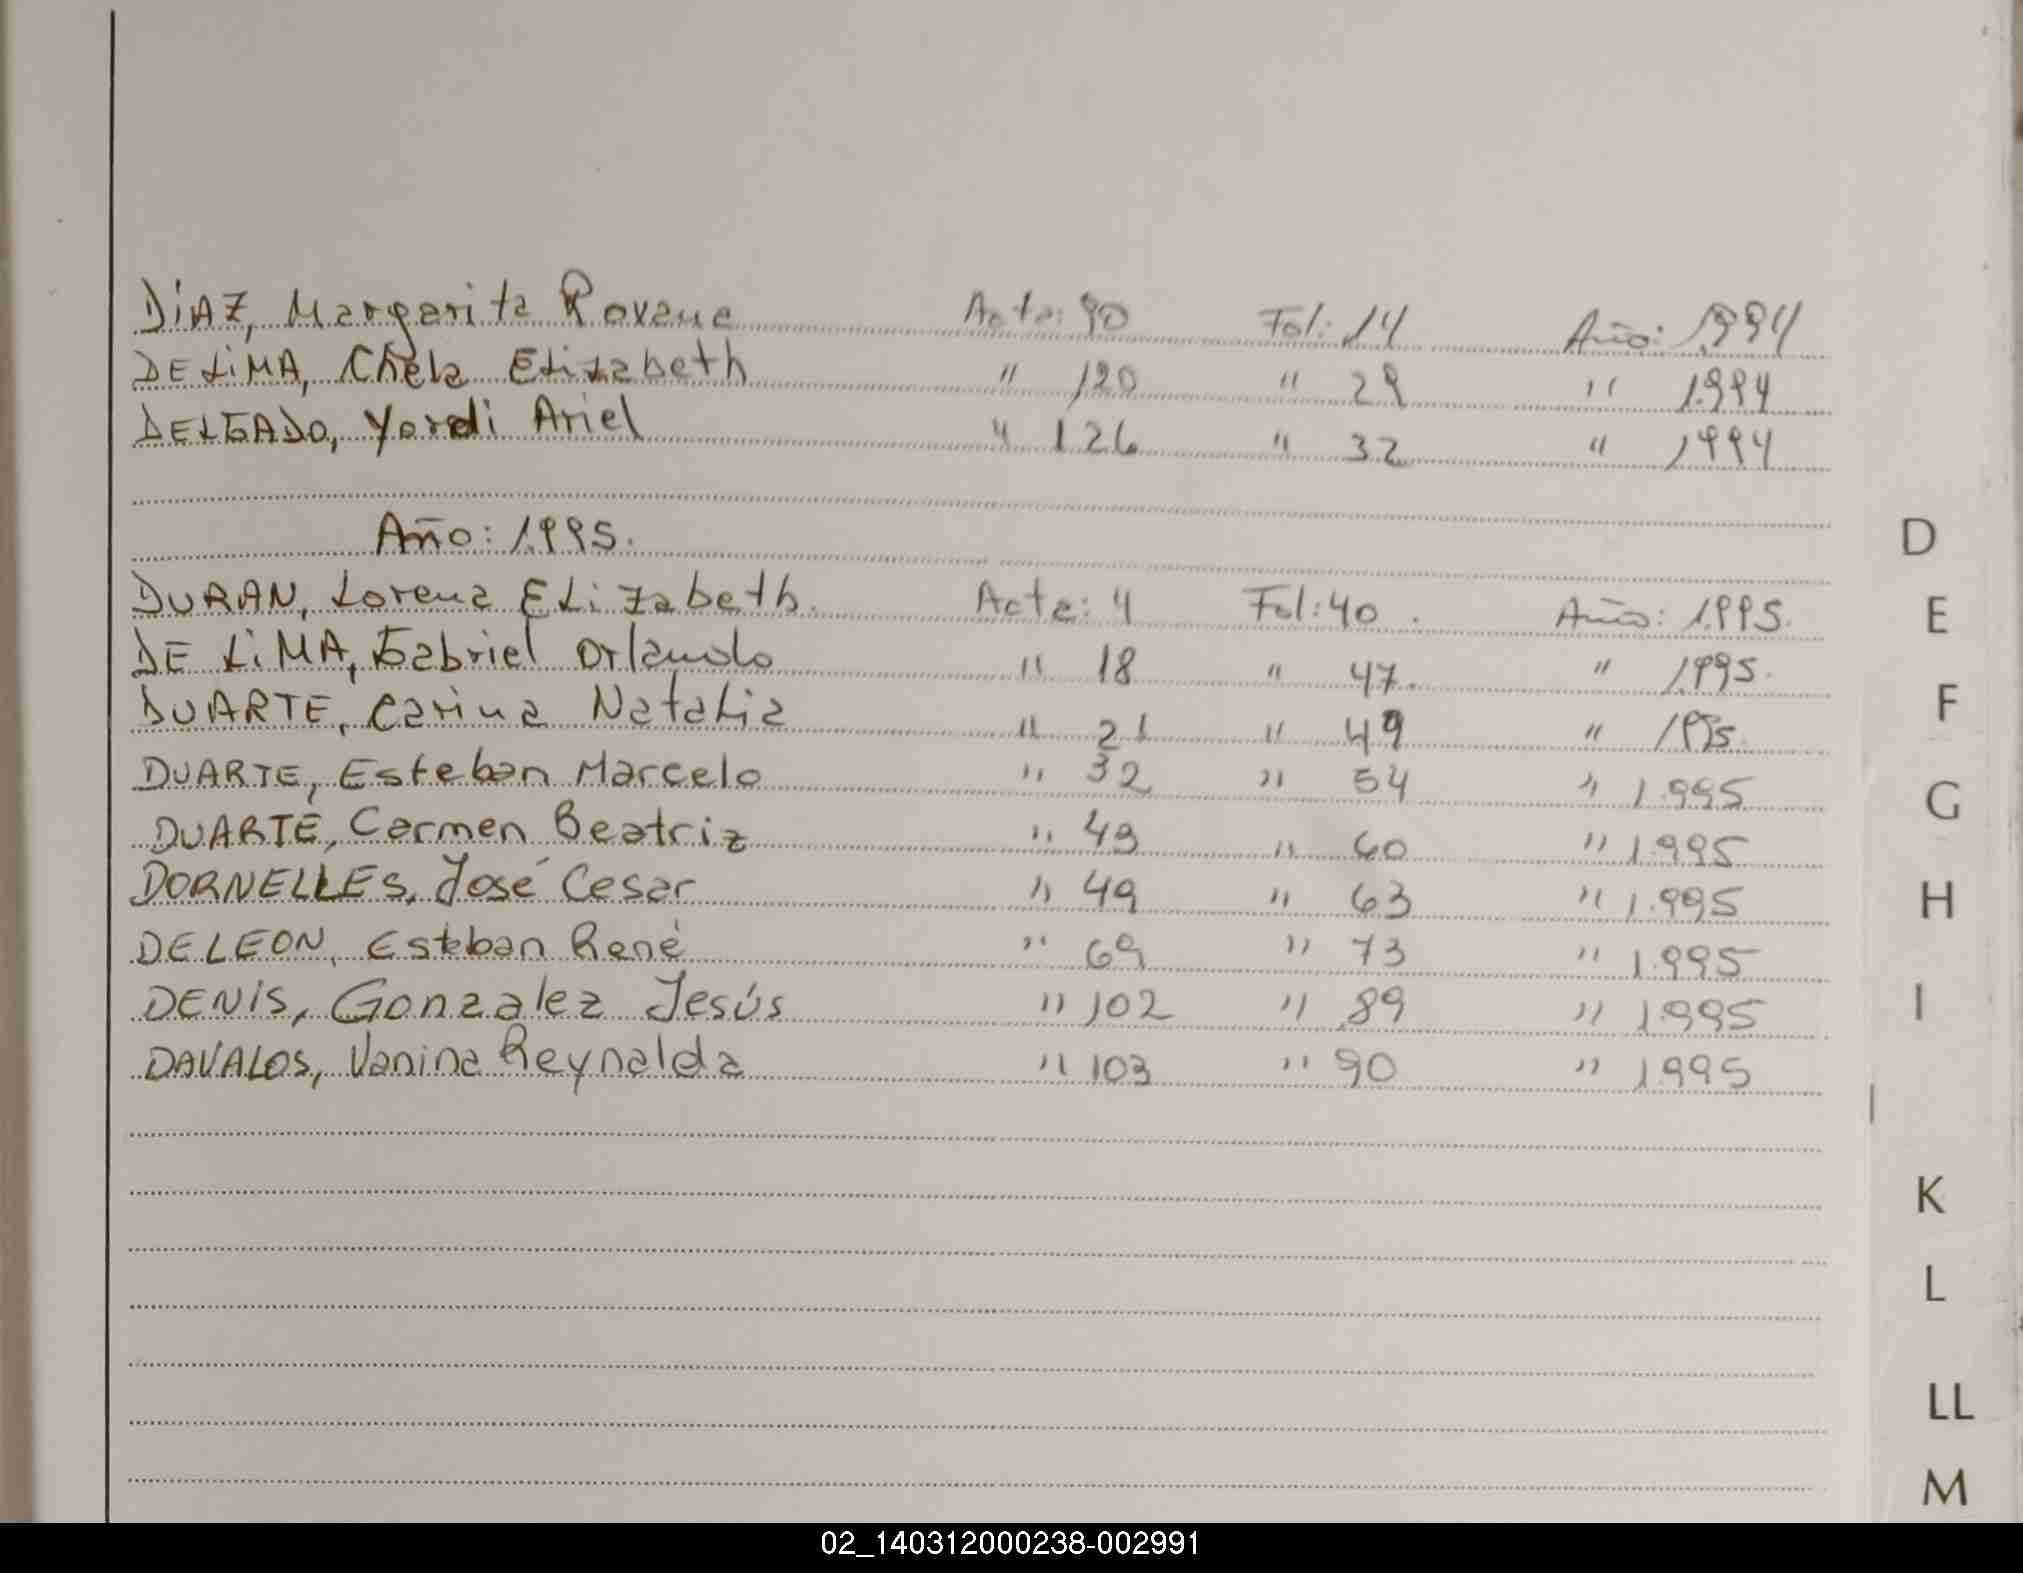 DiAZ, Margarita Roxana Acta: 90 Fol: 14 Año: 1.994
DE LiMA, Chela Elizabeth " 120 " 29 " 1.994
DELGADO, Yordi Ariel " 126 " 32 " 1994
Año: 1.995.
DURAN, Lorena Elizabeth. Acta: 4 Fol: 40. Año: 1.995.
DE LiMA, Gabriel Orlando " 18 " 47. " 1.995.
DUARTE, Carina Natalia " 21 " 49 " 1995.
DUARTE, Esteban Marcelo " 32 " 54 " 1.995
DUARTE, Carmen Beatriz " 43 " 60 " 1.995
DORNELLES, José Cesar " 49 " 63 " 1.995
DELEON, Esteban René " 69 " 73 " 1.995
DENiS, Gonzalez Jesús " 102 " 89 " 1.995
DAVALOS, Vanina Reynalda " 103 " 90 " 1.995
D
E
F
G
H
I
K
L
LL
M
02_140312000238-002991